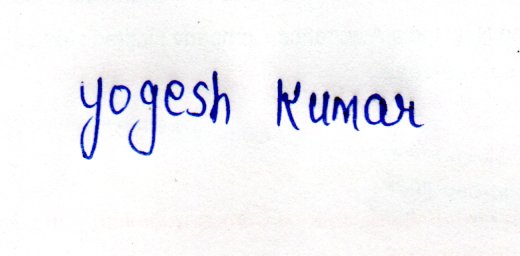 yogesh Kumar